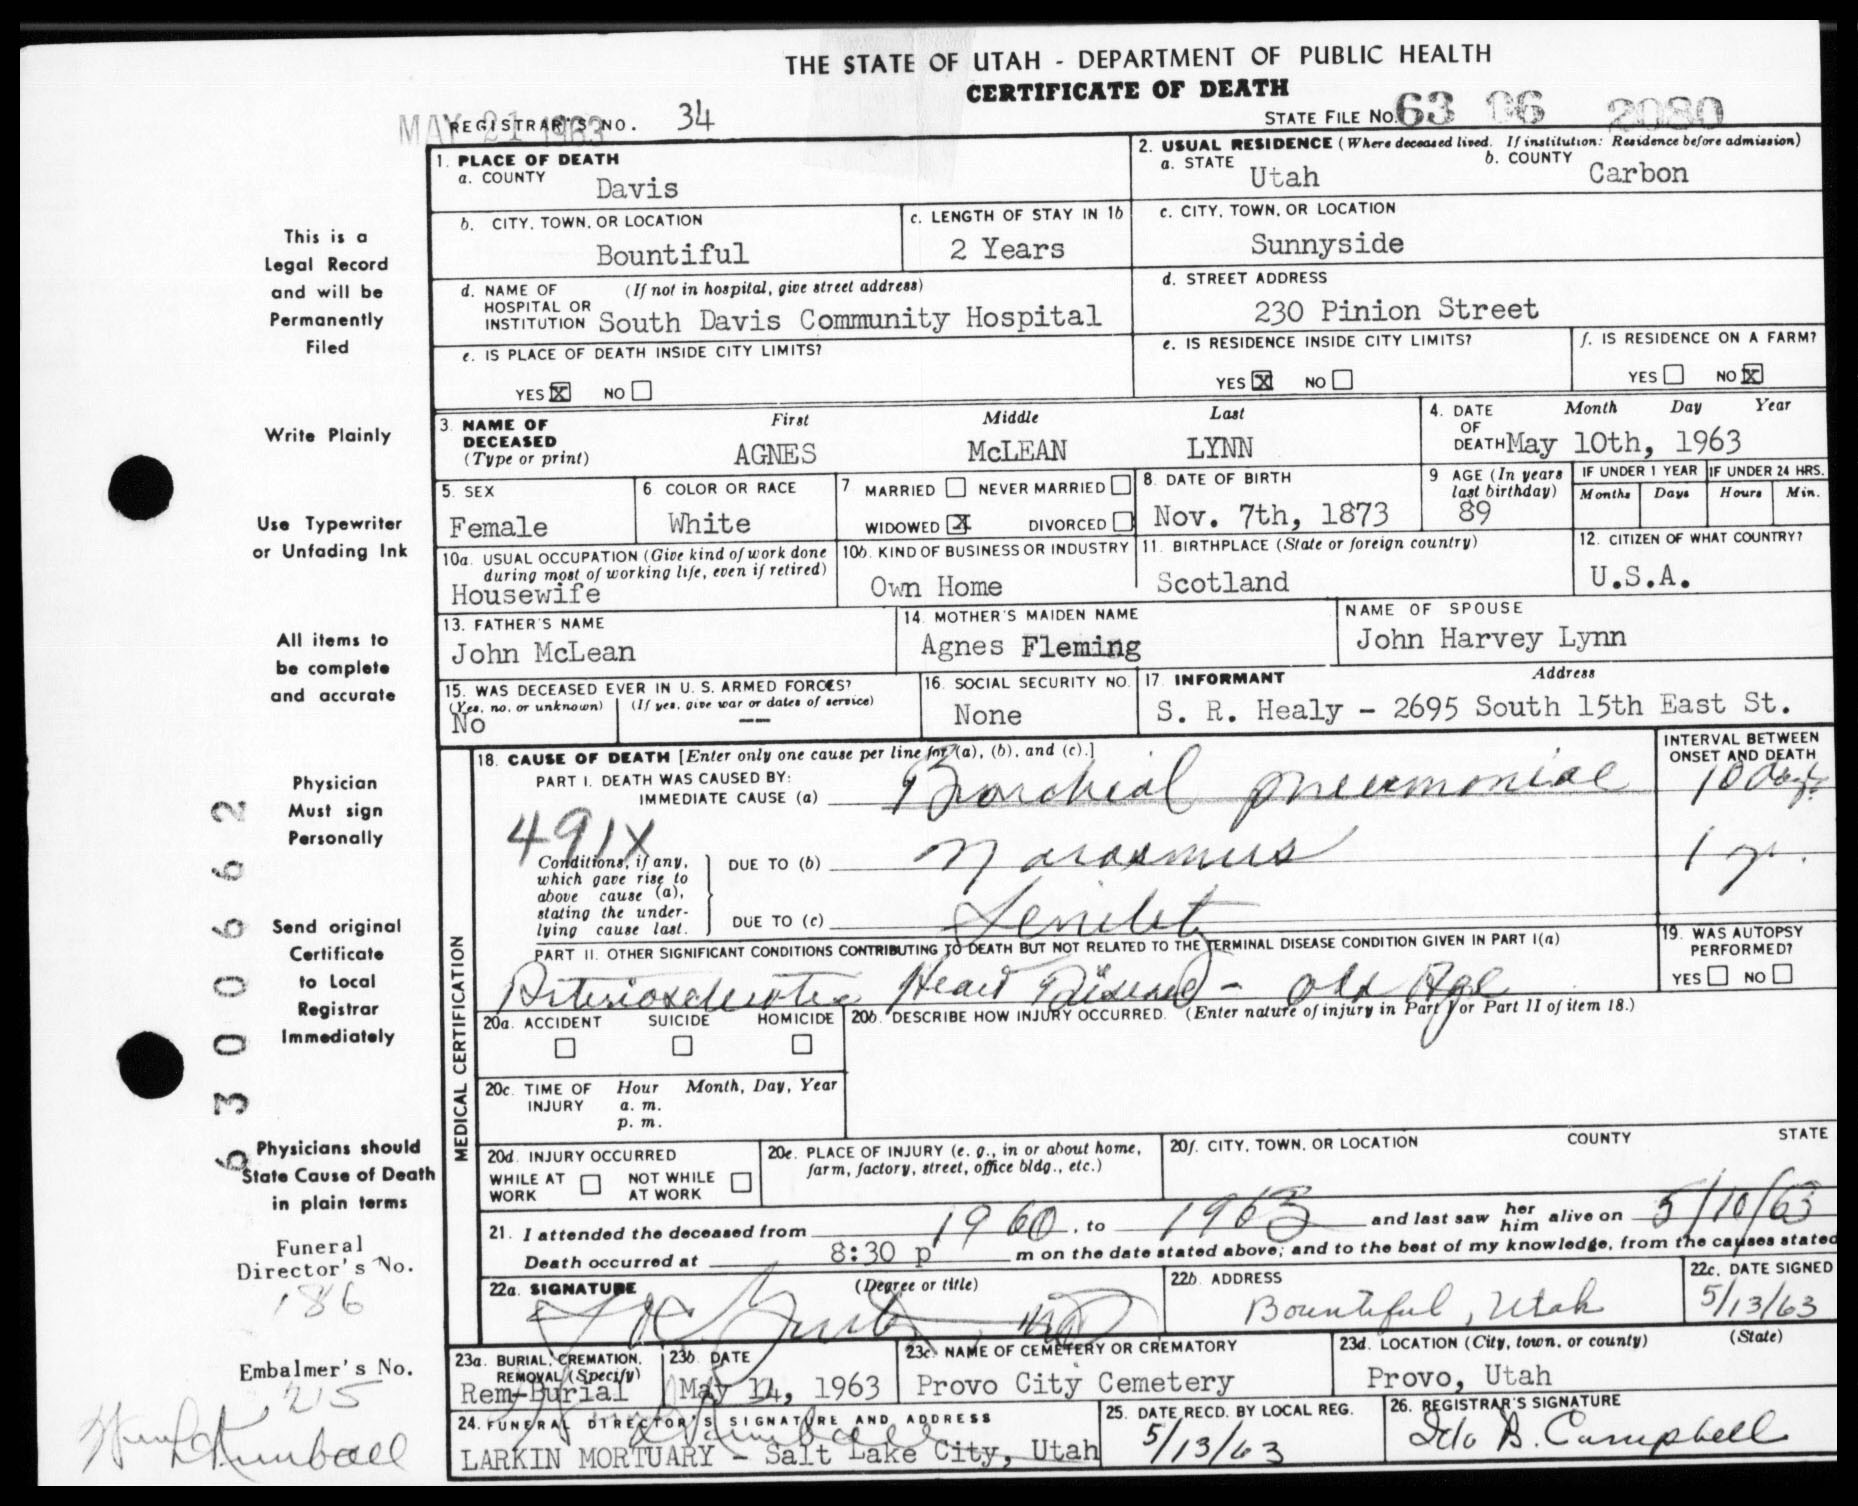 THE STATE OF UTAH - DEPARTMENT OF PUBLIC HEALTH
CERTIFICATE OF DEATH
MAY 21 1963
REGISTRAR'S NO. 34
STATE FILE NO. 63 06 2080
1. PLACE OF DEATH
a. COUNTY Davis
2. USUAL RESIDENCE (Where deceased lived. If institution: Residence before admission)
a. STATE Utah b. COUNTY Carbon
b. CITY, TOWN, OR LOCATION Bountiful
c. LENGTH OF STAY IN 1b 2 Years
c. CITY, TOWN, OR LOCATION Sunnyside
d. NAME OF HOSPITAL OR INSTITUTION (If not in hospital, give street address) South Davis Community Hospital
d. STREET ADDRESS 230 Pinion Street
e. IS PLACE OF DEATH INSIDE CITY LIMITS?
YES X NO
e. IS RESIDENCE INSIDE CITY LIMITS?
YES X NO
f. IS RESIDENCE ON A FARM?
YES NO X
3. NAME OF DECEASED (Type or print)
First Middle Last
AGNES McLEAN LYNN
4. DATE OF DEATH Month Day Year
May 10th, 1963
5. SEX Female
6. COLOR OR RACE White
7. MARRIED NEVER MARRIED
WIDOWED X DIVORCED
8. DATE OF BIRTH Nov. 7th, 1873
9. AGE (In years last birthday) 89
IF UNDER 1 YEAR Months Days
IF UNDER 24 HRS. Hours Min.
10a. USUAL OCCUPATION (Give kind of work done during most of working life, even if retired) Housewife
10b. KIND OF BUSINESS OR INDUSTRY Own Home
11. BIRTHPLACE (State or foreign country) Scotland
12. CITIZEN OF WHAT COUNTRY? U.S.A.
13. FATHER'S NAME John McLean
14. MOTHER'S MAIDEN NAME Agnes Fleming
NAME OF SPOUSE John Harvey Lynn
15. WAS DECEASED EVER IN U.S. ARMED FORCES?
(Yes, no, or unknown) No (If yes, give war or dates of service) --
16. SOCIAL SECURITY NO. None
17. INFORMANT Address
S. R. Healy - 2695 South 15th East St.
MEDICAL CERTIFICATION
18. CAUSE OF DEATH [Enter only one cause per line for (a), (b), and (c).]
INTERVAL BETWEEN ONSET AND DEATH
PART I. DEATH WAS CAUSED BY:
IMMEDIATE CAUSE (a) Bronchial pneumoniae 10 days
491X
Conditions, if any, which gave rise to above cause (a), stating the underlying cause last.
DUE TO (b) Marasmus 1 yr.
DUE TO (c) Senility
PART II. OTHER SIGNIFICANT CONDITIONS CONTRIBUTING TO DEATH BUT NOT RELATED TO THE TERMINAL DISEASE CONDITION GIVEN IN PART I(a)
Arteriosclerotic Heart Disease - Old Age
19. WAS AUTOPSY PERFORMED?
YES NO
20a. ACCIDENT SUICIDE HOMICIDE
20b. DESCRIBE HOW INJURY OCCURRED. (Enter nature of injury in Part I or Part II of item 18.)
20c. TIME OF INJURY Hour Month, Day, Year
a. m.
p. m.
20d. INJURY OCCURRED
WHILE AT WORK NOT WHILE AT WORK
20e. PLACE OF INJURY (e. g., in or about home, farm, factory, street, office bldg., etc.)
20f. CITY, TOWN, OR LOCATION COUNTY STATE
21. I attended the deceased from 1960, to 1963 and last saw her him alive on 5/10/63
Death occurred at 8:30 p m on the date stated above; and to the best of my knowledge, from the causes stated
22a. SIGNATURE (Degree or title)
22b. ADDRESS Bountiful, Utah
22c. DATE SIGNED 5/13/63
23a. BURIAL, CREMATION, REMOVAL (Specify) Rem-Burial
23b. DATE May 14, 1963
23c. NAME OF CEMETERY OR CREMATORY Provo City Cemetery
23d. LOCATION (City, town, or county) (State)
Provo, Utah
24. FUNERAL DIRECTOR'S SIGNATURE AND ADDRESS
LARKIN MORTUARY - Salt Lake City, Utah
25. DATE RECD. BY LOCAL REG. 5/13/63
26. REGISTRAR'S SIGNATURE Ida B. Campbell
This is a
Legal Record
and will be
Permanently
Filed
Write Plainly
Use Typewriter
or Unfading Ink
All items to
be complete
and accurate
Physician
Must sign
Personally
Send original
Certificate
to Local
Registrar
Immediately
6300662
Physicians should
State Cause of Death
in plain terms
Funeral
Director's No.
186
Embalmer's No.
215
Kimball